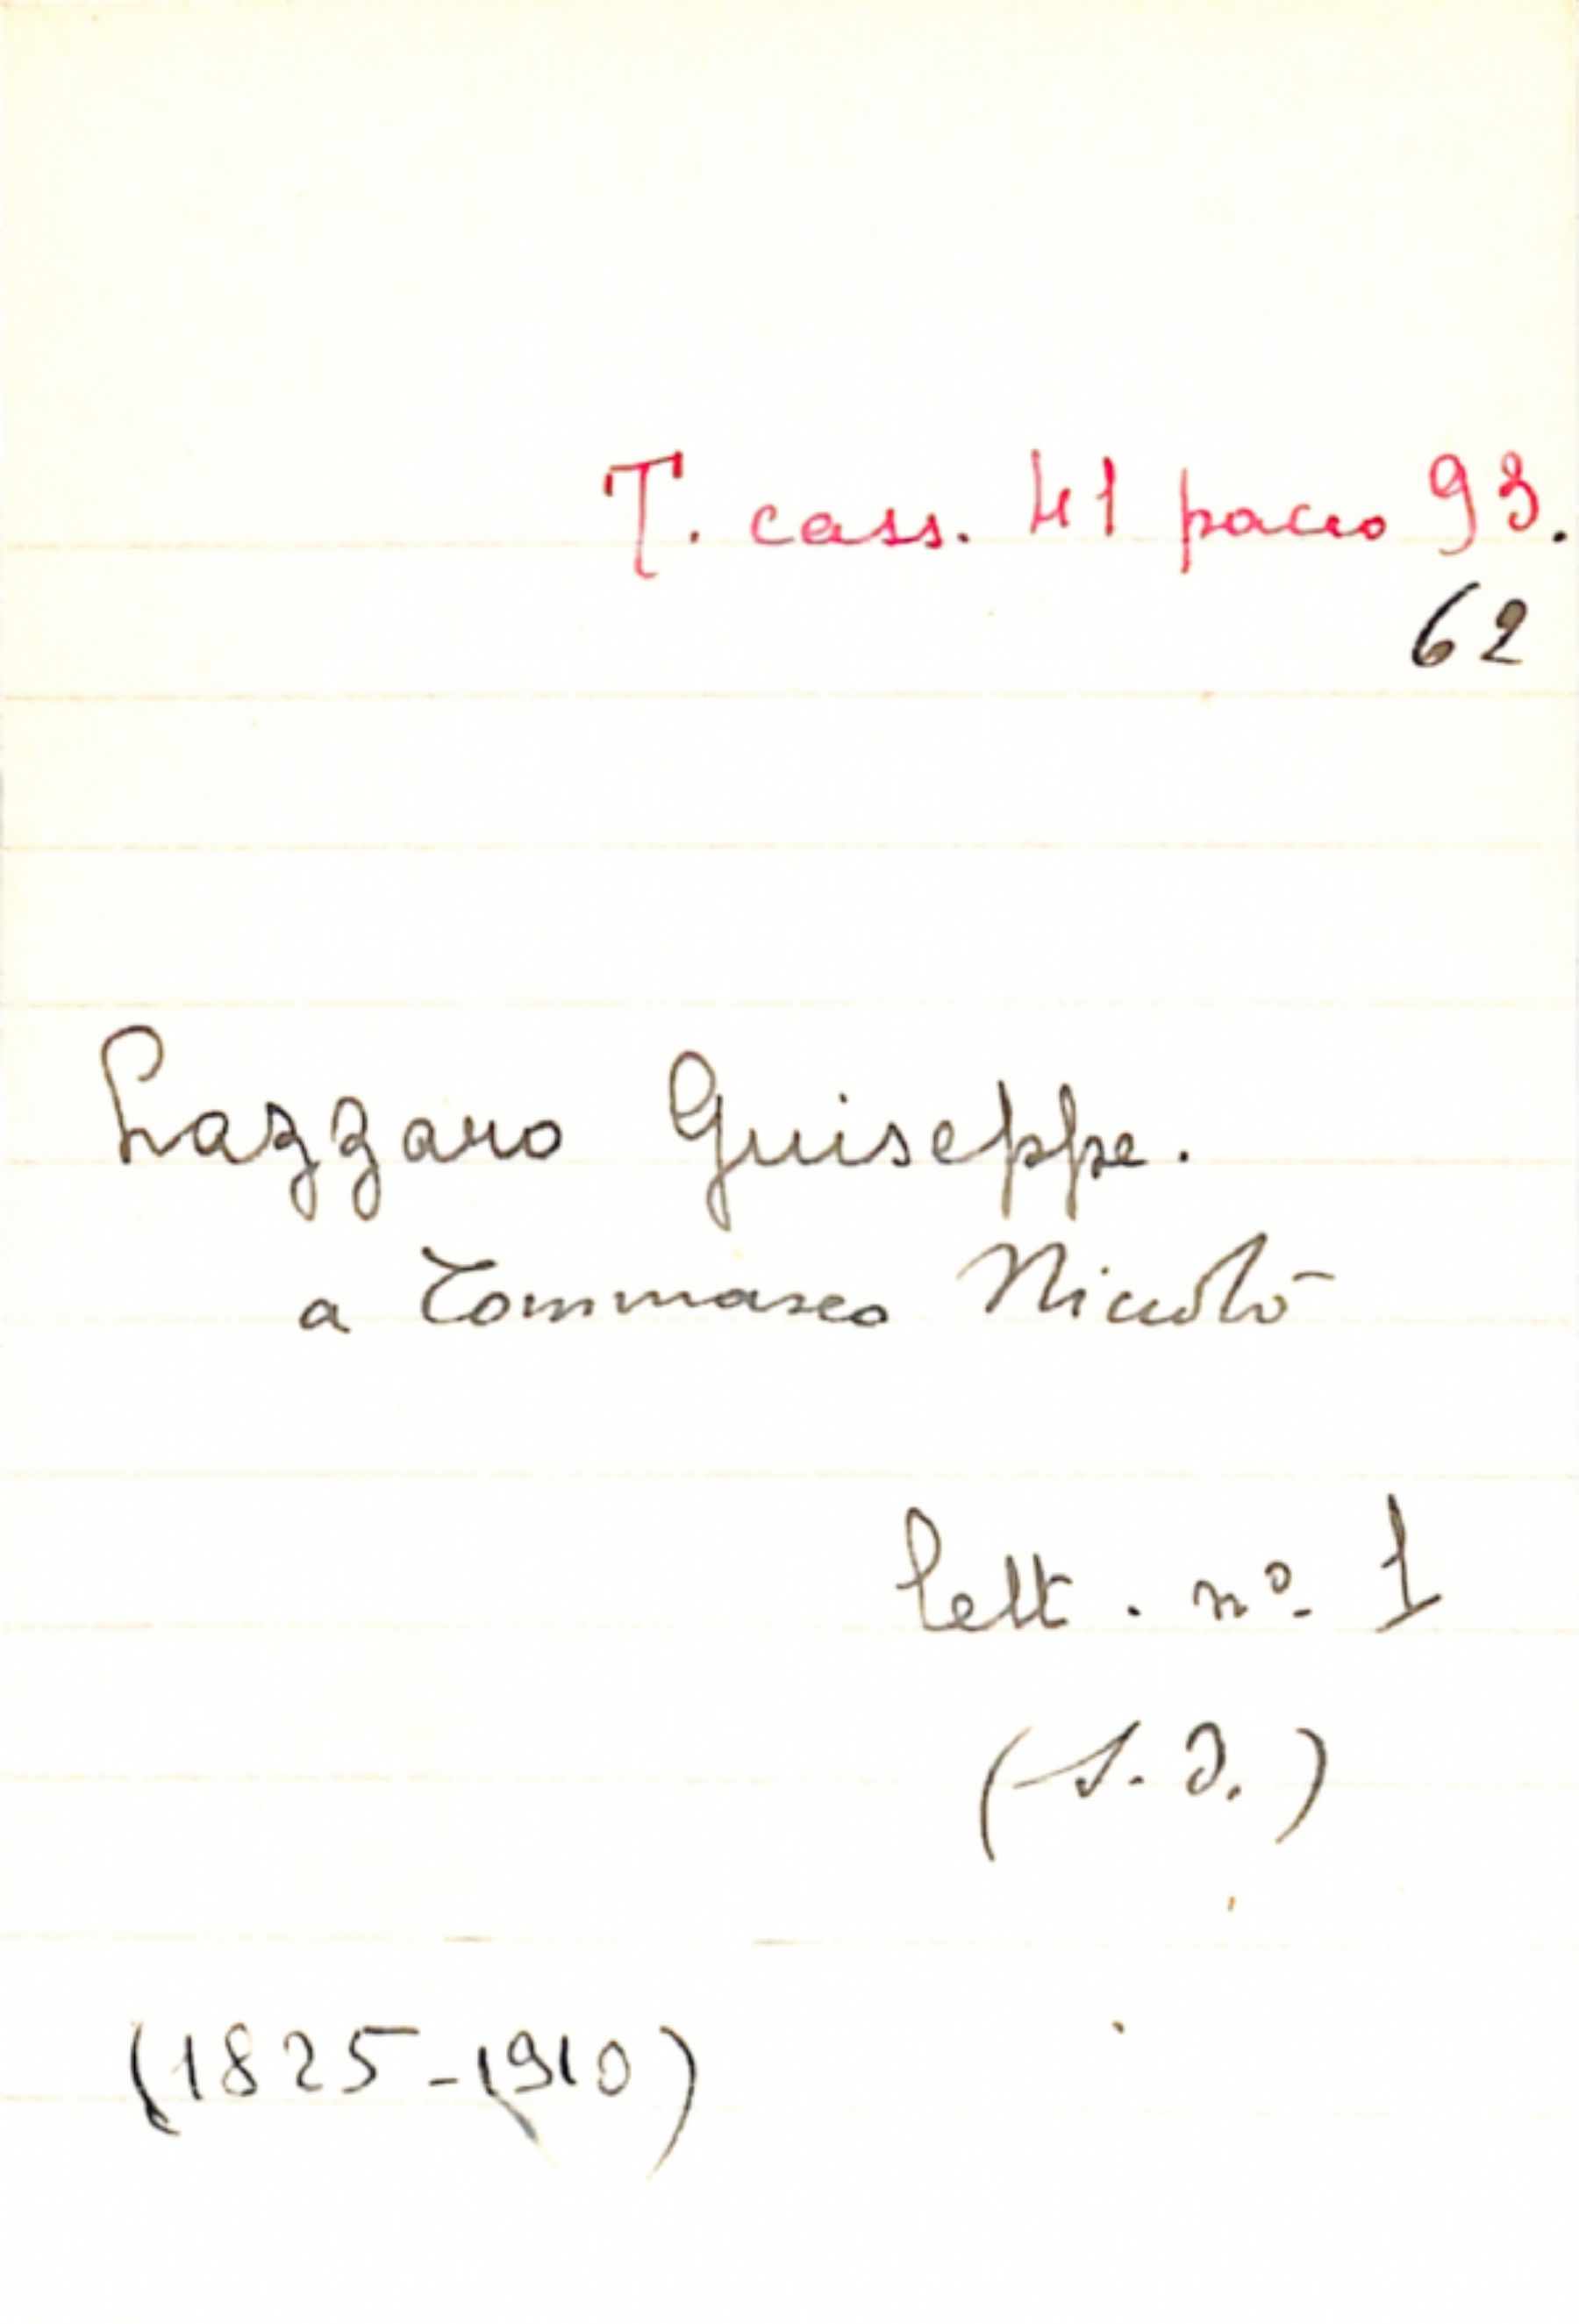 T. cass. 41 pacco 93.
62
Lazzaro Giuseppe.
a Tommaseo Niccolò
lett. nº 1
(s. d.)
(1825-1910)